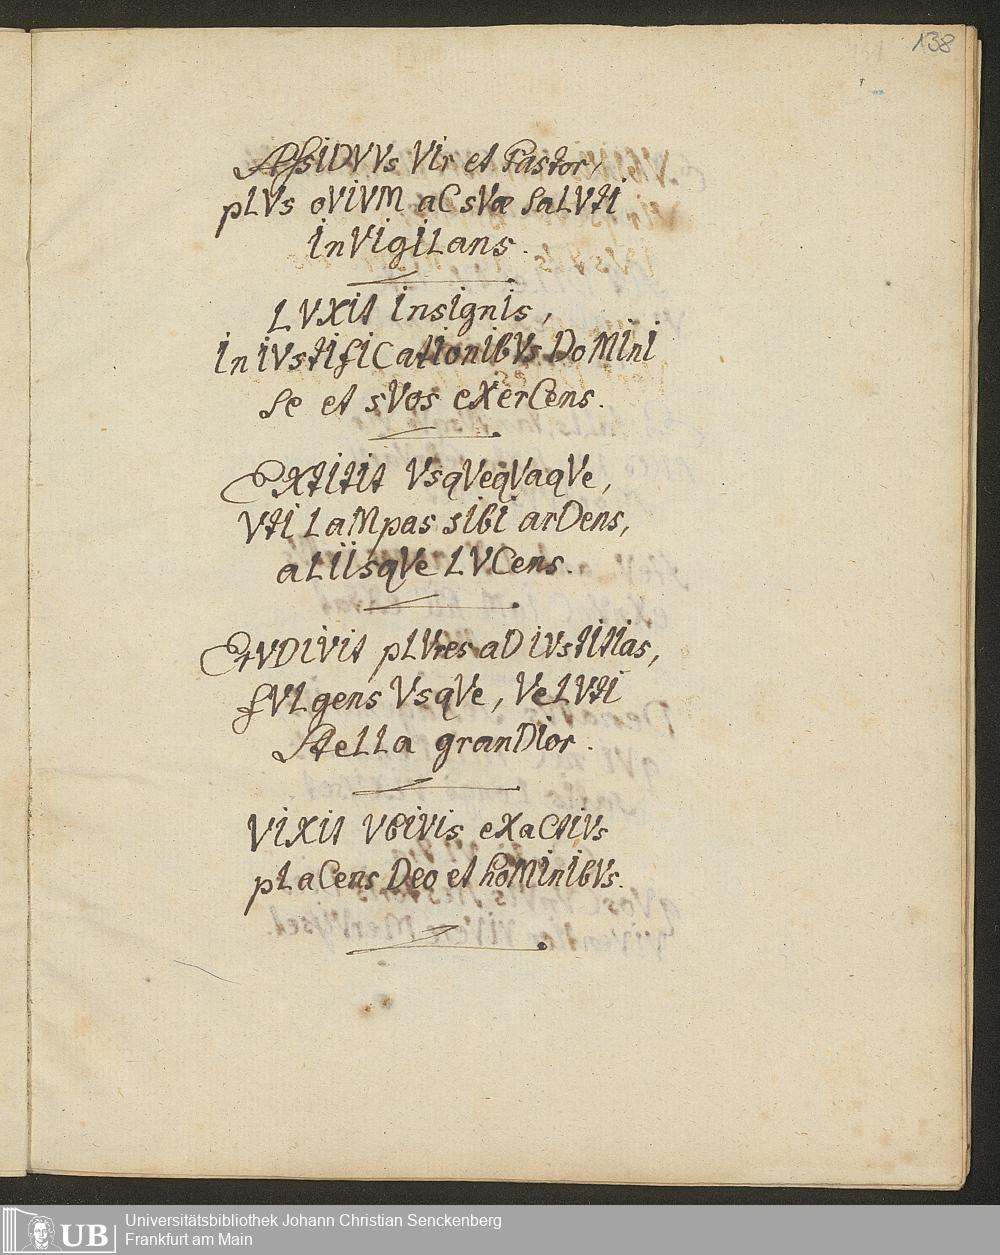 138
AssIDVVs VIr et Pastor,
pLVs oVIVM aC sVæ saLVtI
InVIgILans.
LVXIt InsIgnIs,
In IVstIfICatIonIbVs DoMInI
se et sVos eXerCens.
EXtItIt VsqVeqVaqVe,
VtI LaMpas sIbI arDens,
aLIIsqVe LVCens.
ErVDIVIt pLVres aD IVstItIas,
fVLgens VsqVe, VeLVtI
SteLLa granDIor.
VIXIt VbIVIs eXaCtIVs
pLaCens Deo et hoMInIbVs.
UB
Universitätsbibliothek Johann Christian Senckenberg
Frankfurt am Main